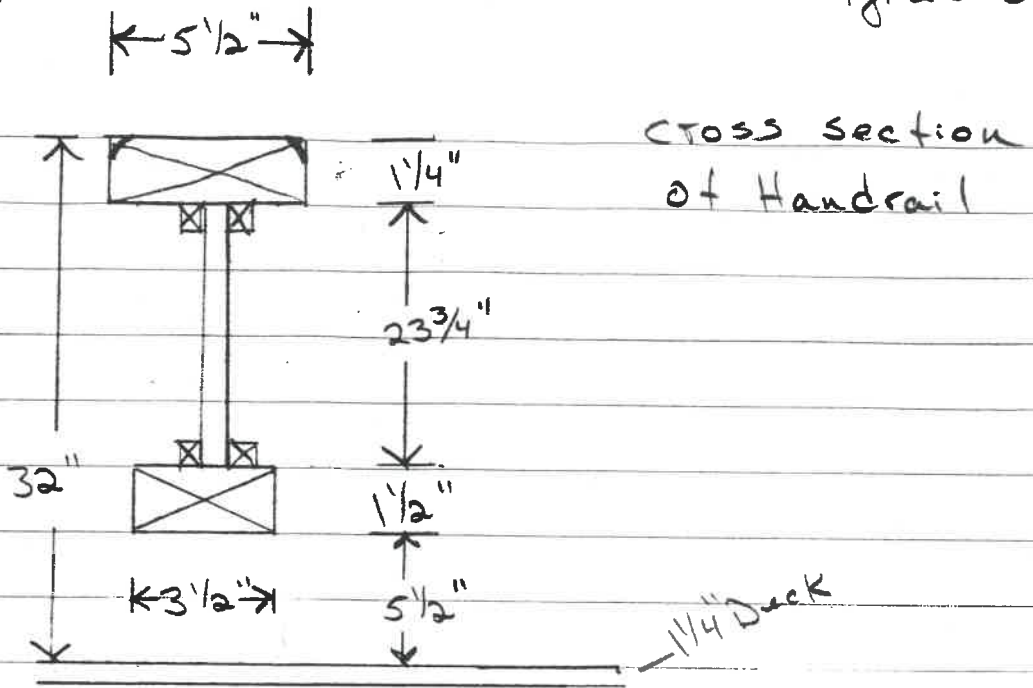 5 1/2"
cross section
of Handrail
1 1/4"
23 3/4"
32"
1 1/2"
3 1/2"
5 1/2"
1 1/4" Deck